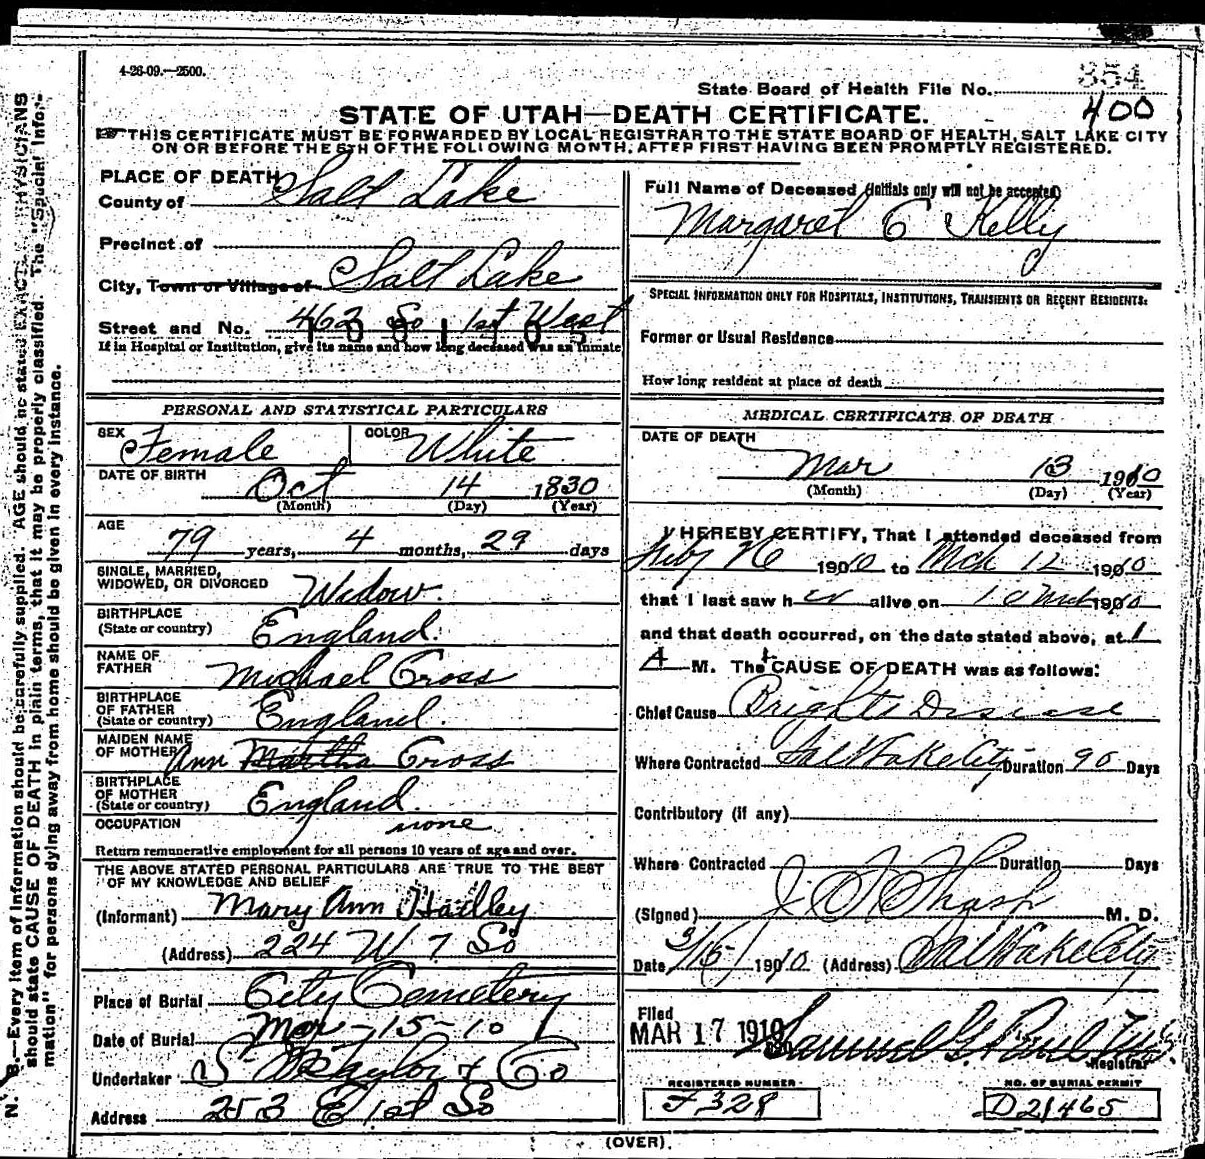 4-26-09.—2500.
State Board of Health File No. 354
400
STATE OF UTAH—DEATH CERTIFICATE.
THIS CERTIFICATE MUST BE FORWARDED BY LOCAL REGISTRAR TO THE STATE BOARD OF HEALTH, SALT LAKE CITY
ON OR BEFORE THE 5TH OF THE FOLLOWING MONTH, AFTER FIRST HAVING BEEN PROMPTLY REGISTERED.
PLACE OF DEATH
County of Salt Lake
Precinct of
City, Town or Village of Salt Lake
Street and No. 462 So 1st West
If in Hospital or Institution, give its name and how long deceased was an inmate
PERSONAL AND STATISTICAL PARTICULARS
SEX Female COLOR White
DATE OF BIRTH Oct 14 1830
(Month) (Day) (Year)
AGE
79 years, 4 months, 29 days
SINGLE, MARRIED,
WIDOWED, OR DIVORCED Widow.
BIRTHPLACE
(State or country) England.
NAME OF
FATHER Michael Cross
BIRTHPLACE
OF FATHER
(State or country) England.
MAIDEN NAME
OF MOTHER Ann Martha Cross
BIRTHPLACE
OF MOTHER
(State or country) England.
OCCUPATION none
Return remunerative employment for all persons 10 years of age and over.
THE ABOVE STATED PERSONAL PARTICULARS ARE TRUE TO THE BEST
OF MY KNOWLEDGE AND BELIEF
(Informant) Mary Ann Hadley
(Address) 224 W 7 So
Place of Burial City Cemetery
Date of Burial Mar-15-10
Undertaker S M Taylor & Co
Address 253 E 1st So
Full Name of Deceased (Initials only will not be accepted)
Margaret C Kelly
SPECIAL INFORMATION ONLY FOR HOSPITALS, INSTITUTIONS, TRANSIENTS OR RECENT RESIDENTS:
Former or Usual Residence
How long resident at place of death
MEDICAL CERTIFICATE OF DEATH
DATE OF DEATH
Mar 13 1910
(Month) (Day) (Year)
I HEREBY CERTIFY, That I attended deceased from
1900 to Mch 12 1910
that I last saw her alive on 1910
and that death occurred, on the date stated above, at 1
A M. The CAUSE OF DEATH was as follows:
Chief Cause Brights Disease
Where Contracted Salt Lake City Duration 90 Days
Contributory (if any)
Where Contracted Duration Days
(Signed) M. D.
Date 3/15/1910 (Address) Salt Lake City
Filed
MAR 17 1910 Samuel G Paul
Registrar
REGISTERED NUMBER
F 328
NO. OF BURIAL PERMIT
D21465
(OVER).
N. B.—Every item of information should be carefully supplied. AGE should be stated EXACTLY. PHYSICIANS
should state CAUSE OF DEATH in plain terms, that it may be properly classified. The "Special Infor-
mation" for persons dying away from home should be given in every instance.